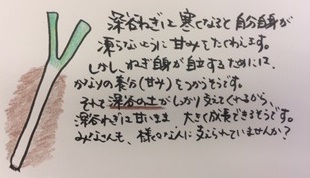 深谷ねぎは寒くなると自分自身が
凍らないように甘みをたくわえます。
しかし、ねぎ自身が自立するためには、
かなりの養分(甘み)をつかうそうです。
それを深谷の土がしっかり支えてくれるから、
深谷ねぎは甘いまま 大きく成長できるそうです。
みなさんも、様々な人に支えられていませんか?